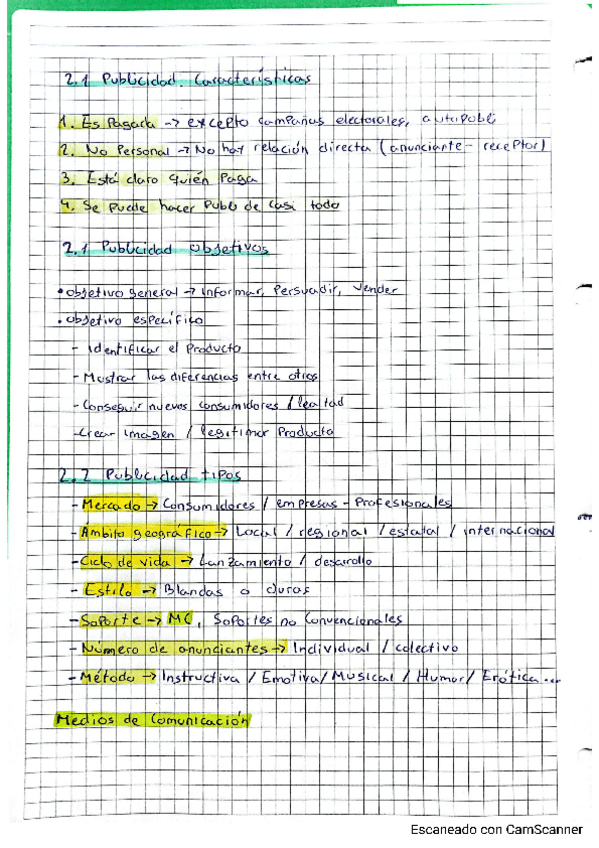 2.1 Publicidad. Características
1. Es Pagada -> excepto campañas electorales, autopubli
2. No Personal -> No hay relación directa (anunciante - receptor)
3. Está claro quién Paga
4. Se puede hacer Publi de casi todo
2.1 Publicidad objetivos
• objetivo general -> Informar, Persuadir, Vender
• objetivo específico
- Identificar el Producto
- Mostrar las diferencias entre otros
- Conseguir nuevos consumidores / lealtad
- Crear imagen / legitimar Producto
2.2 Publicidad tipos
- Mercado -> Consumidores / empresas - Profesionales
- Ámbito geográfico -> Local / regional / estatal / internacional
- Ciclo de vida -> Lanzamiento / desarollo
- Estilo -> Blandas o duras
- Soporte -> MC, Soportes no Convencionales
- Número de anunciantes -> Individual / colectivo
- Método -> Instructiva / Emotiva / Musical / Humor / Erótica ...
Medios de Comunicación
Escaneado con CamScanner